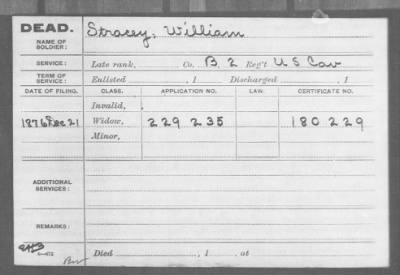 DEAD. Stracey, William
NAME OF SOLDIER:
SERVICE: Late rank, Co. B, 2 Reg't U S Cav
TERM OF SERVICE: Enlisted , 1 Discharged , 1
DATE OF FILING. CLASS. APPLICATION NO. LAW. CERTIFICATE NO.
Invalid,
1876 Dec 21 Widow, 229 235 180 229
Minor,
ADDITIONAL SERVICES:
REMARKS:
Died , 1 , at